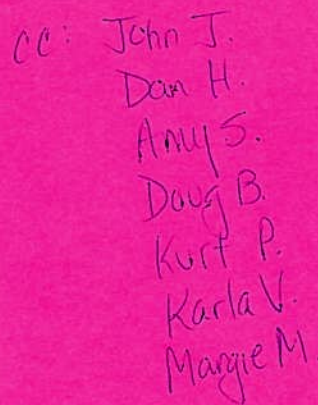 cc: John J.
Dan H.
Amy S.
Doug B.
Kurt P.
Karla V.
Margie M.